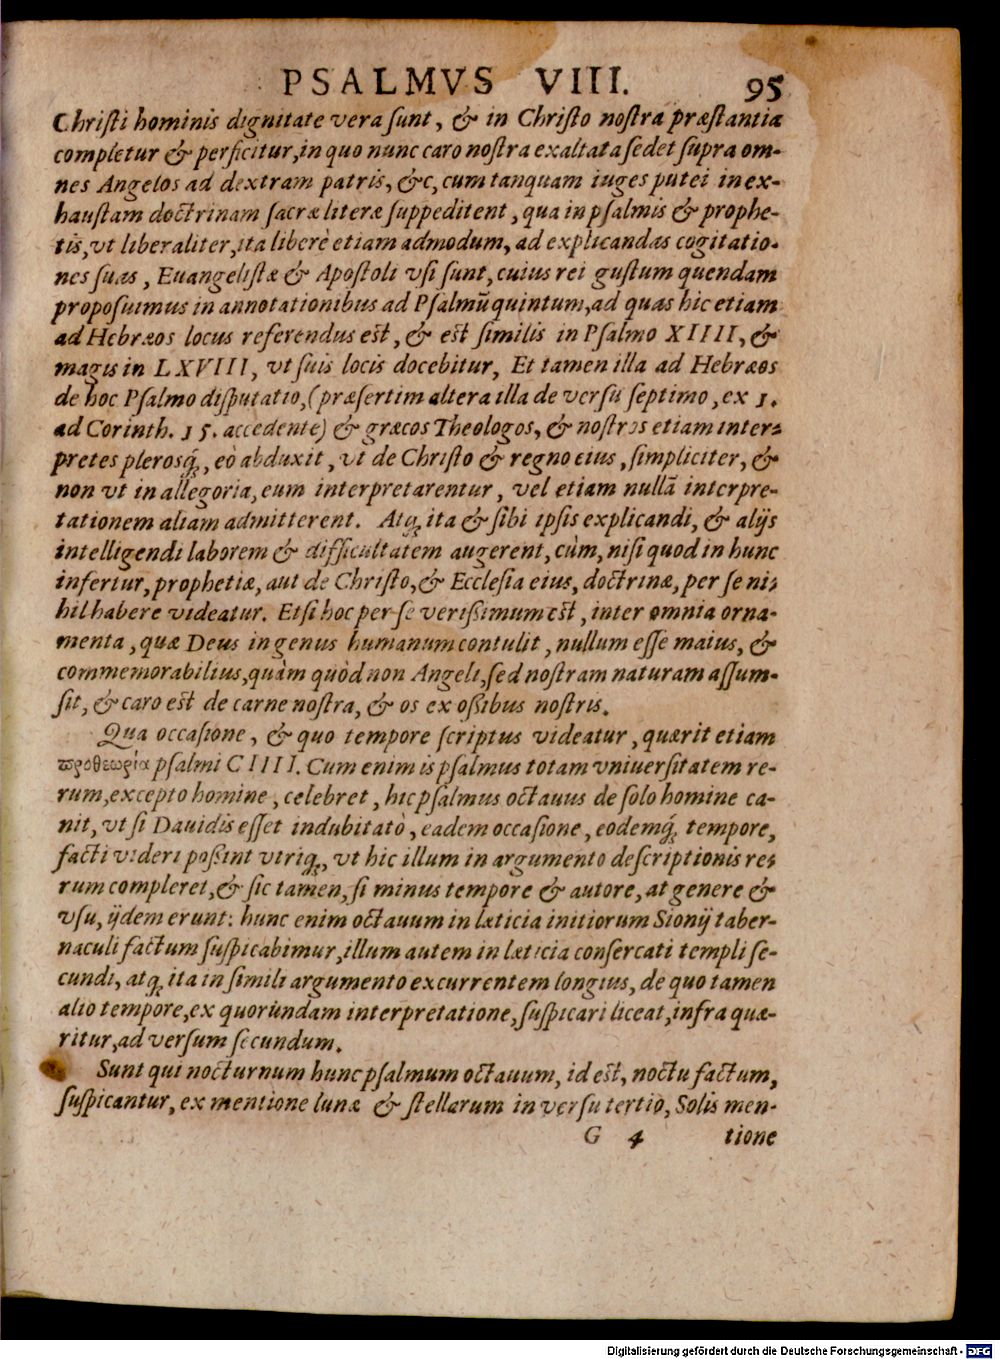 PSALMVS VIII. 95
Christi hominis dignitate vera sunt, & in Christo nostra præstantia
completur & perficitur, in quo nunc caro nostra exaltata sedet supra om-
nes Angelos ad dextram patris, &c, cum tanquam iuges putei inex-
haustam doctrinam sacræ literæ suppeditent, qua in psalmis & prophe-
tis, vt liberaliter, ita liberè etiam admodum, ad explicandas cogitatio-
nes suas, Euangelistæ & Apostoli vsi sunt, cuius rei gustum quendam
proposuimus in annotationibus ad Psalmũ quintum, ad quas hic etiam
ad Hebræos locus referendus est, & est similis in Psalmo XIIII, &
magis in LXVIII, vt suis locis docebitur, Et tamen illa ad Hebræos
de hoc Psalmo disputatio, (præsertim altera illa de versu septimo, ex 1.
ad Corinth. 15. accedente) & græcos Theologos, & nostros etiam inter-
pretes plerosq́;, eò abduxit, vt de Christo & regno eius, simpliciter, &
non vt in allegoria, eum interpretarentur, vel etiam nullã interpre-
tationem aliam admitterent. Atq; ita & sibi ipsis explicandi, & alijs
intelligendi laborem & difficultatem augerent, cùm, nisi quod in hunc
infertur, prophetiæ, aut de Christo, & Ecclesia eius, doctrinæ, per se ni-
hil habere videatur. Etsi hoc per se verißimum est, inter omnia orna-
menta, quæ Deus in genus humanum contulit, nullum esse maius, &
commemorabilius, quàm quòd non Angeli, sed nostram naturam assum-
sit, & caro est de carne nostra, & os ex oßibus nostris.
Qua occasione, & quo tempore scriptus videatur, quærit etiam
προθεωρία psalmi CIIII. Cum enim is psalmus totam vniuersitatem re-
rum, excepto homine, celebret, hic psalmus octauus de solo homine ca-
nit, vt si Dauidis esset indubitatò, eadem occasione, eodemq́; tempore,
facti videri poßint vtriq;, vt hic illum in argumento descriptionis re-
rum compleret, & sic tamen, si minus tempore & autore, at genere &
vsu, ijdem erunt: hunc enim octauum in læticia initiorum Sionij taber-
naculi factum suspicabimur, illum autem in læticia consercati templi se-
cundi, atq; ita in simili argumento excurrentem longius, de quo tamen
alio tempore, ex quorundam interpretatione, suspicari liceat, infra quæ-
ritur, ad versum secundum.
Sunt qui nocturnum hunc psalmum octauum, id est, noctu factum,
suspicantur, ex mentione lunæ & stellarum in versu tertio, Solis men-
G 4 tione
Digitalisierung gefördert durch die Deutsche Forschungsgemeinschaft - DFG